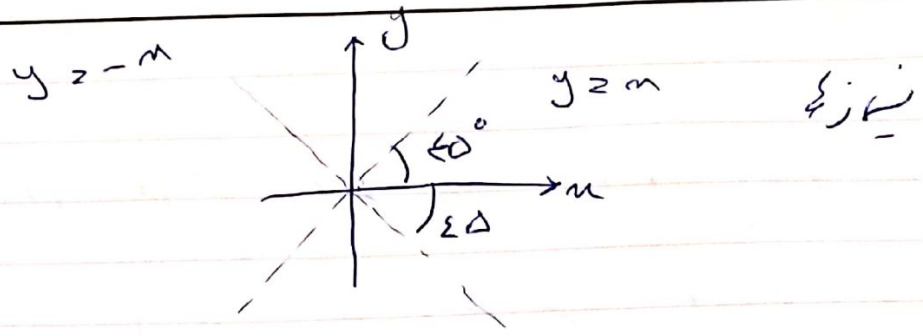 y
y = -x
y = x
نیمساز
۴۵°
x
۴۵